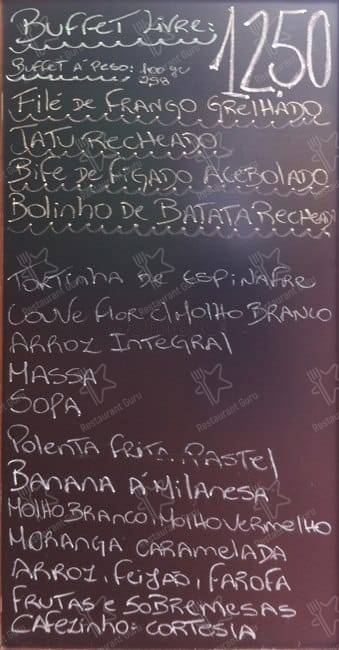 Buffet Livre: 12,50
Buffet a' Peso: 100 gr
2,98
Filé de Frango Grelhado
Tatu Recheado
Bife de Fígado Acebolado
Bolinho de Batata Recheado
Tortinha de Espinafre
Couve Flor c/ Molho Branco
Arroz Integral
Massa
Sopa
Polenta Frita... Pastel
Banana á Milanesa
Molho Branco, Molho Vermelho
Moranga Caramelada
Arroz, Feijão, Farofa
Frutas e Sobremesas
Cafezinho: Cortesia
Restaurant Guru